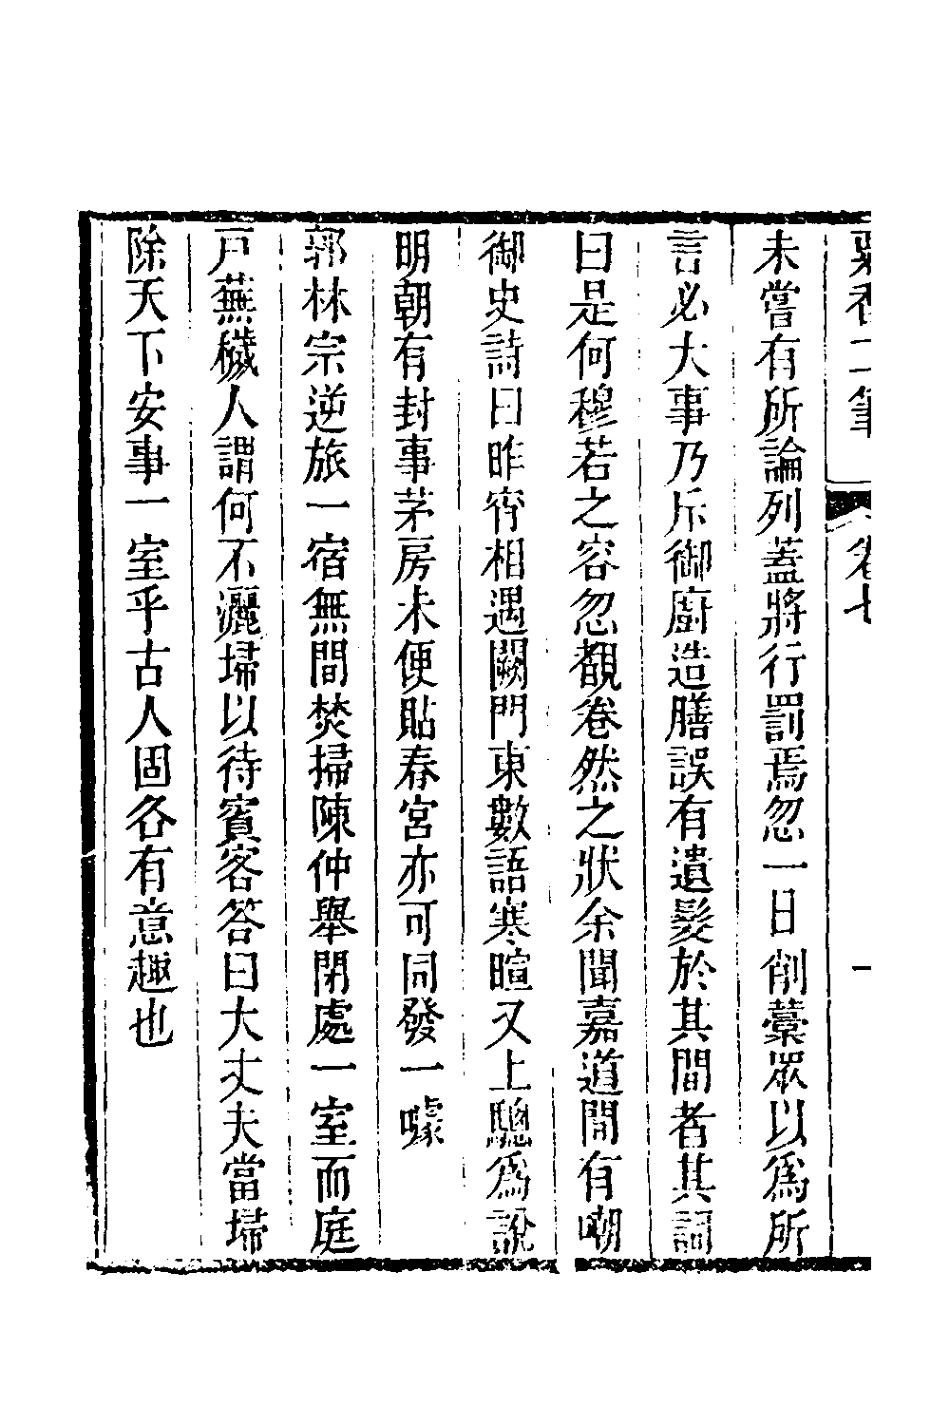 粟香二筆 卷七 一
未嘗有所論列蓋將行罰焉忽一日削藁眾以為所
言必大事乃斥御廚造膳誤有遺髮於其間者其詞
曰是何穆若之容忽覩卷然之狀余聞嘉道間有嘲
御史詩曰昨宵相遇闕門東數語寒暄又上驄為說
明朝有封事茅房未便貼春宮亦可同發一噱
郭林宗逆旅一宿無間焚掃陳仲舉閉處一室而庭
戸蕪穢人謂何不灑埽以待賓客答曰大丈夫當埽
除天下安事一室乎古人固各有意趣也